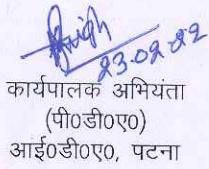 23-02-22
कार्यपालक अभियंता
(पी0डी0ए0)
आई0डी0ए0, पटना